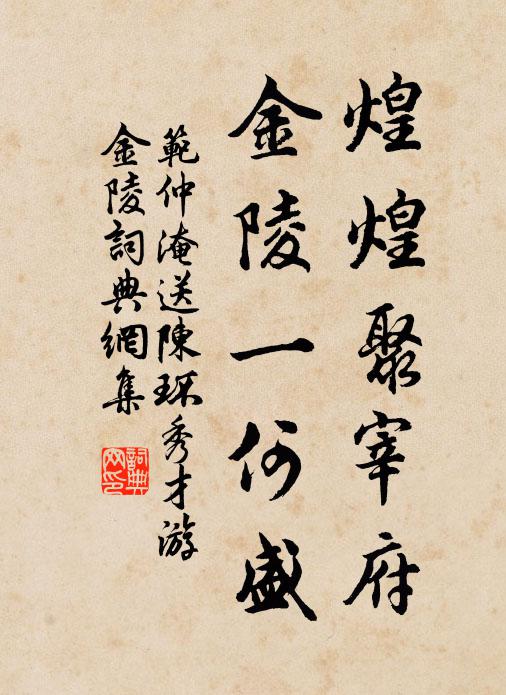 煌煌聚宰府
金陵一何盛
範仲淹送陳琛秀才游
金陵詞典網集
詞典
网印